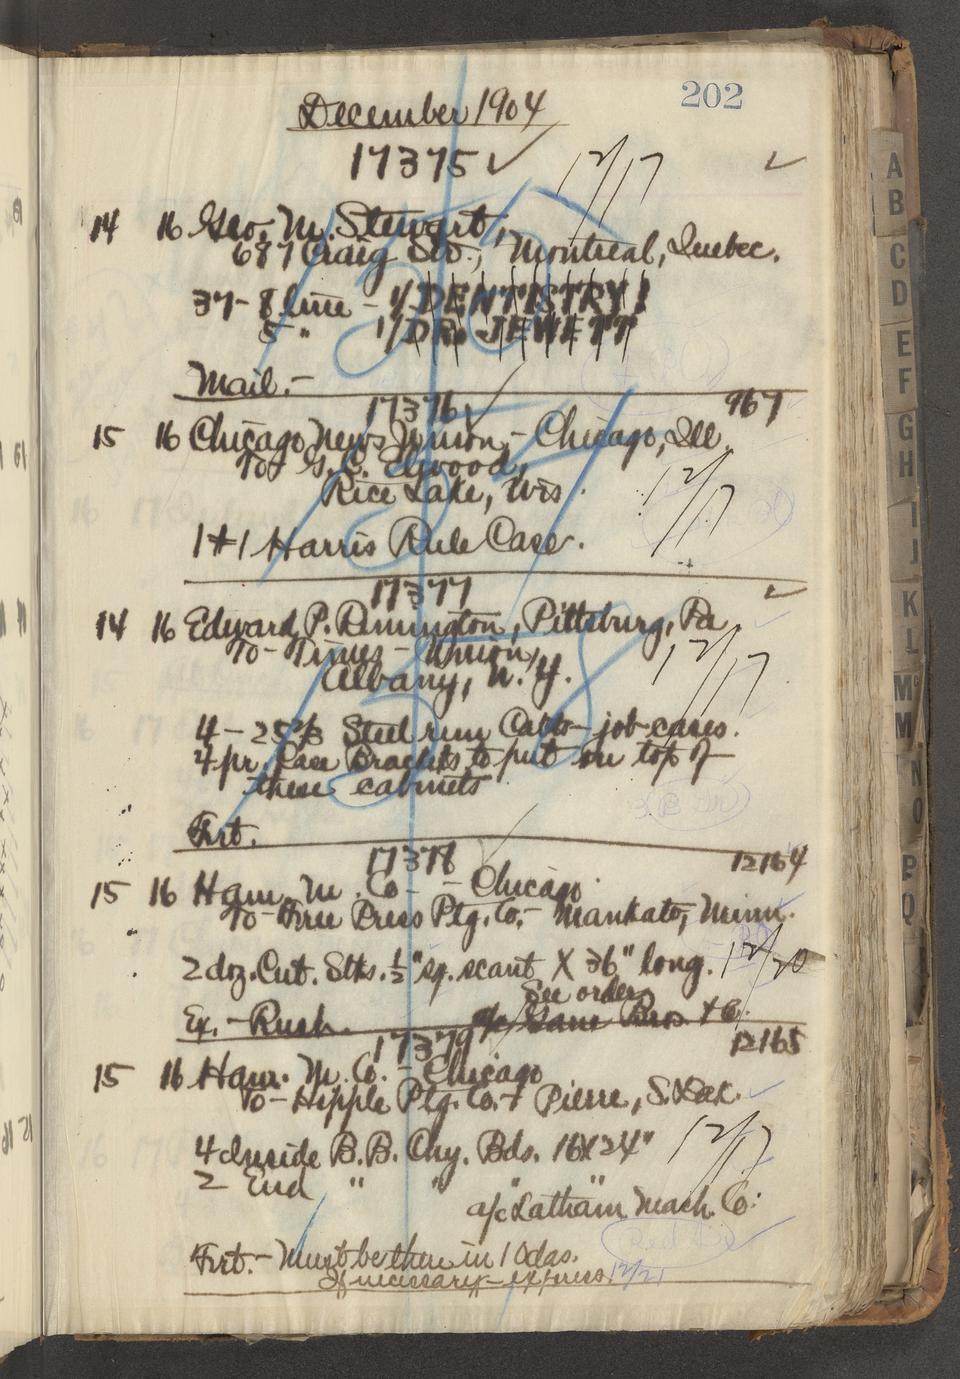 202
December 1904
17375 ✓ 12/17 ✓
14 16 Geo. M. Stewart,
687 Craig St., Montreal, Quebec.
37- 8 line - 1/ DENTISTRY!
5 " 1/ DR. JEWETT
Mail.-
17376 967
15 16 Chicago News Union,- Chicago, Ill.
To- G. C. Elwood,
Rice Lake, Wis. 12/17
1 #1 Harris Rule Case.
17377 ✓
14 16 Edward P. Remington, Pittsburg, Pa.
To- Times-Union, 12/17
Albany, N. Y.
4- Steel run Cabts- job cases.
4 pr. Case Brackets to put on top of
these cabinets
Frt.
17378 12164
15 16 Ham. M. Co. - Chicago
To- Free Press Ptg. Co.- Mankato, Minn.
2 doz. Cut. Stks. 1/2" sq. scant X 36" long. 12/20
See order
Ex. - Rush. a/c Bros. & Co.
17379 12165
15 16 Ham. M. Co. - Chicago
To- Hipple Ptg. Co.- Pierre, S. Dak.
4 Inside B. B. Chy. Bds. 16X24" 12/17
2 End " " " "
a/c Latham Mach. Co.
Frt.- Must be there in 10 das.
If necessary- express. 12/21
A
B
C
D
E
F
G
H
I
J
K
L
Mc
M
N
O
P
Q